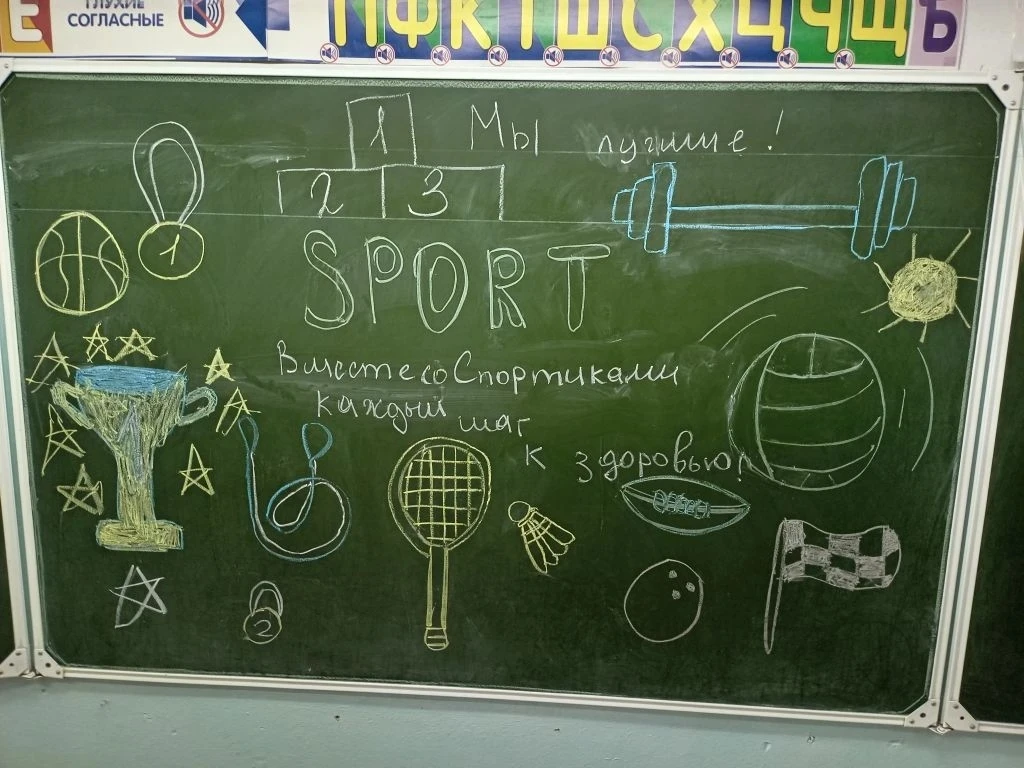 Е
ГЛУХИЕ
СОГЛАСНЫЕ
П Ф К Т Ш С Х Ц Ч Щ Ъ
1
Мы лучшие!
2 3
1
SPORT
Вместе со Спортиками
каждый шаг
к здоровью!
2